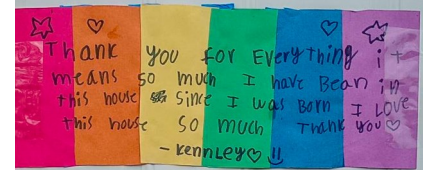 Thank you for Everything it
means so much I have Bean in
this house since I was Born I LOVE
this house so much Thank you
- Kennley